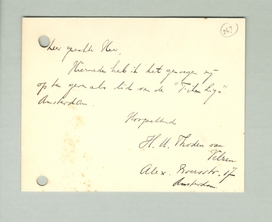 Zeer geachte Heer,
Hiermede heb ik het genoegen mij
op te geven als lid van de "Filmliga"
Amsterdam.
Hoogachtend
H. M. Thoden van
Velzen
Alex. Boersstr.
Amsterdam